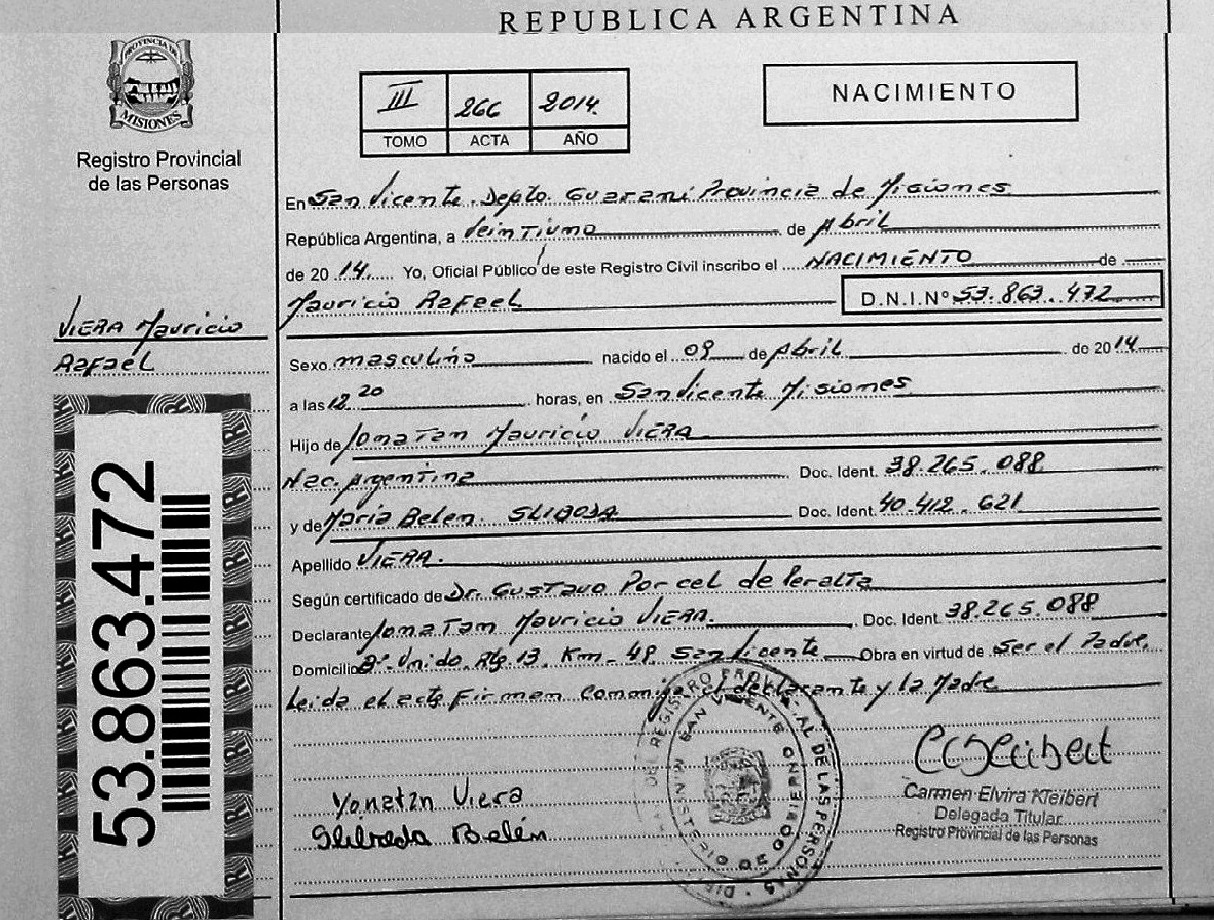 REPUBLICA ARGENTINA
PROVINCIA DE
MISIONES
Registro Provincial
de las Personas
III 266 2014
TOMO ACTA AÑO
NACIMIENTO
En San Vicente. Depto. Guaraní Provincia de Misiones
República Argentina, a Veintiuno de Abril
de 2014 Yo, Oficial Público de este Registro Civil inscribo el NACIMIENTO de
Mauricio Rafael D.N.I.Nº 53.863.472
VIERA Mauricio
Rafael
Sexo masculino nacido el 09 de Abril de 2014
a las 12 20 horas, en San Vicente Misiones
Hijo de Jonatan Mauricio VIERA
Nac. Argentina Doc. Ident. 38.265.088
y de María Belen. Doc. Ident. 40.412.621
Apellido VIERA.
Según certificado de Dr. Gustavo Porcel de Peralta
Declarante Jonatan Mauricio VIERA. Doc. Ident. 38.265.088
Domicilio Bº. Unido. 13. Km-48 San Vicente Obra en virtud de Ser el Padre,
Leida el acta Firman Conmigo el declarante y la Madre
53.863.472
Yonatan Viera
Belén
DEL REGISTRO PROVINCIAL DE LAS PERSONAS
SAN VICENTE
MINISTERIO DE GOBIERNO
Carmen Elvira Kleibert
Delegada Titular
Registro Provincial de las Personas